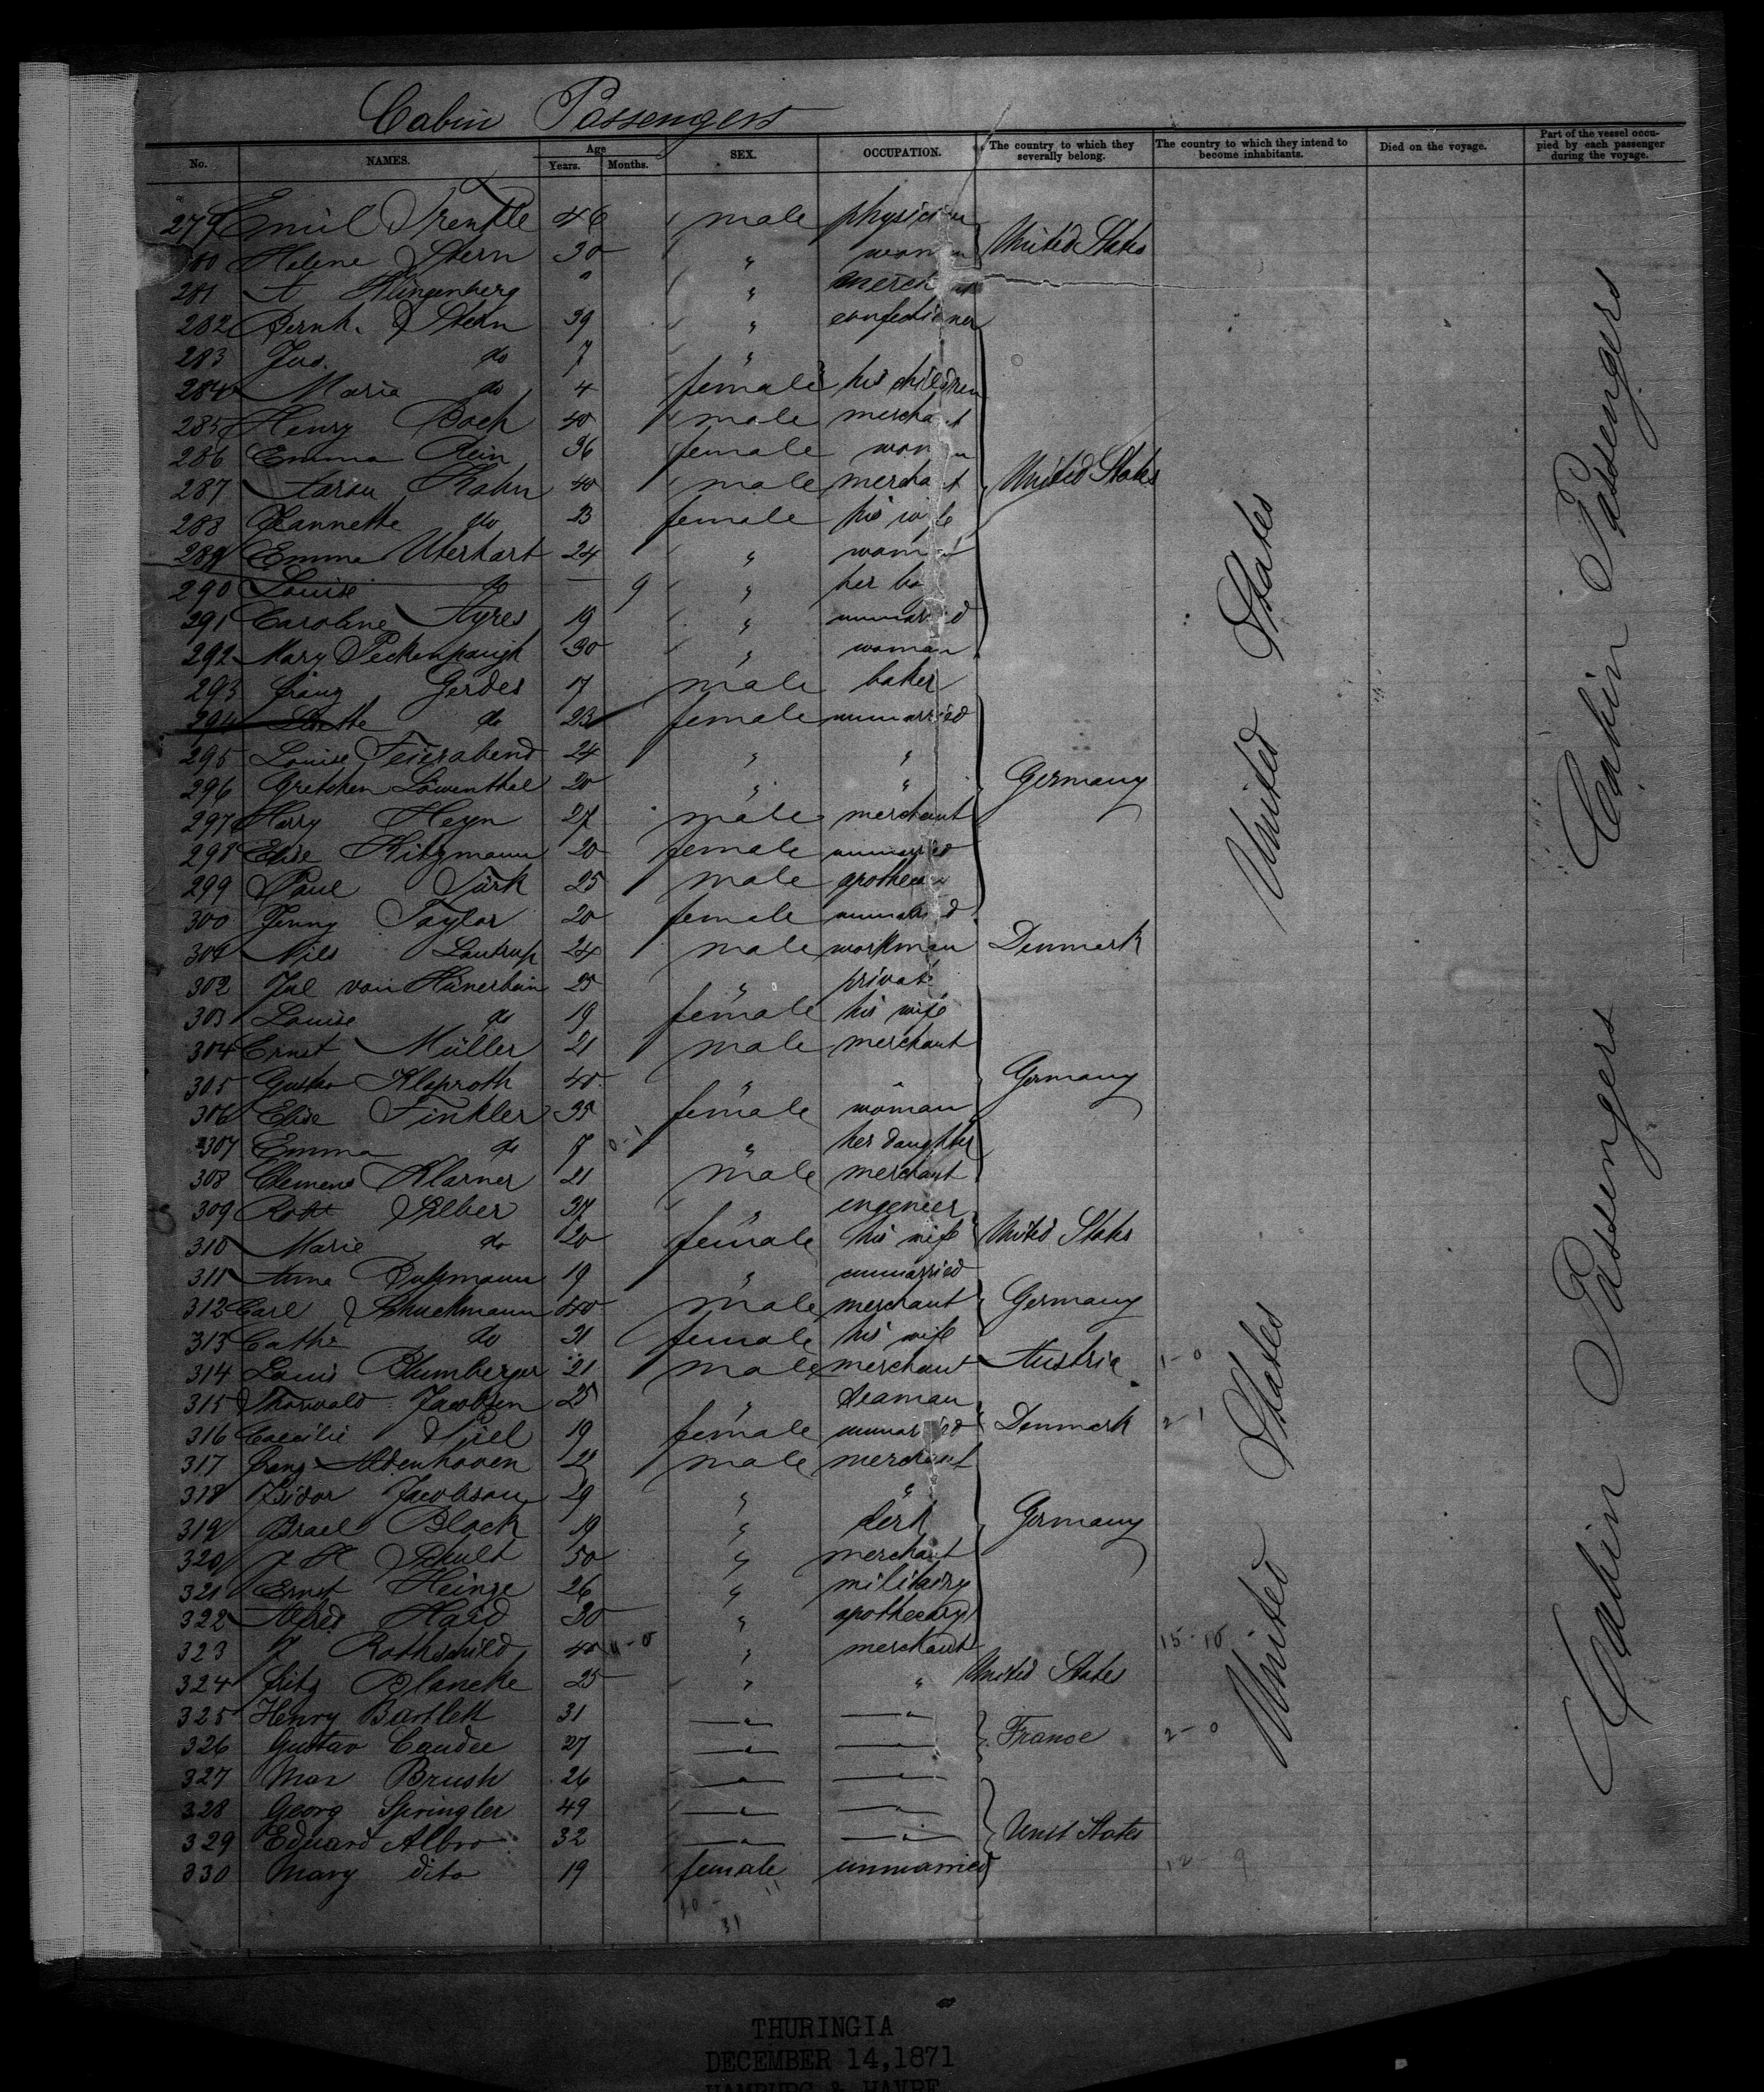 Cabin Passengers
No. NAMES. Age Years. Months. SEX. OCCUPATION. The country to which they severally belong. The country to which they intend to become inhabitants. Died on the voyage. Part of the vessel occupied by each passenger during the voyage.
279 Emil Trenkle 46 male physician
280 Helene Stern 30 " woman United States
281 A Klingenberg " " merchant
282 Bernh. Stern 39 " confectioner
283 Jus. do 7 "
284 Maria do 4 female his children
285 Henry Boch 40 male merchant
286 Emma Rein 36 female woman
287 Aaron Kahn 40 male merchant United States
288 Jeannette do 23 female his wife
289 Emma Uterhart 24 " woman
290 Louise do — 9 " her
291 Caroline Ayres 19 " unmarried
292 Mary Peckenpaugh 30 " woman
293 Franz Gerdes 17 male baker
294 do 23 female unmarried
295 Louise Feierabend 24 " "
296 Gretchen Löwenthal 20 " " Germany
297 Harry Heyn 27 male merchant
298 Elise Kitzmann 20 female unmarried
299 Paul Türk 25 male apothecary
300 Jenny Taylor 20 female unmarried
301 Nils Lautrup 24 male workman Denmark
302 Jul von Hünerbein 25 " privat
303 Louise do 19 female his wife
304 Ernst Müller 21 male merchant
305 Gustav Klaproth 40 " " Germany
306 Elise Finkler 35 female woman
307 Emma do 7 " her daughter
308 Clemens Klarner 21 male merchant
309 Silber 37 " engeneer
310 Marie do 20 female his wife United States
311 Anna Bußmann 19 " unmarried
312 Carl Schuckmann 40 male merchant Germany
313 Cathe do 31 female his wife
314 Louis Blumberger 21 male merchant Austria 1-0
315 Thorwald Jacobsen 25 " seaman
316 Caecilie 19 female unmarried Denmark 2-1
317 Franz Aldenhoven 21 male merchant
318 Isidor Jacobson 29 " "
319 Israel Block 19 " clerk Germany
320 J H Schult 50 " merchant
321 Ernst Heinze 26 " military
322 Alfred Haid 30 " apothecary
323 J Rothschild 40 " merchant 15-10
324 Fritz Blancke 25 " " United States
325 Henry Bartlett 31 — " — — " —
326 Gustav Caudee 27 — " — — " — France 2-0
327 Max Brush 26 — " — — " —
328 Georg Springler 49 — " — — " —
329 Eduard Albro 32 — " — — " — Unit States
330 Mary dito 19 female unmarried 12-9
10 - 11
31
United States
United States
Cabin Passengers
Cabin Passengers
THURINGIA
DECEMBER 14,1871
HAMBURG & HAVRE